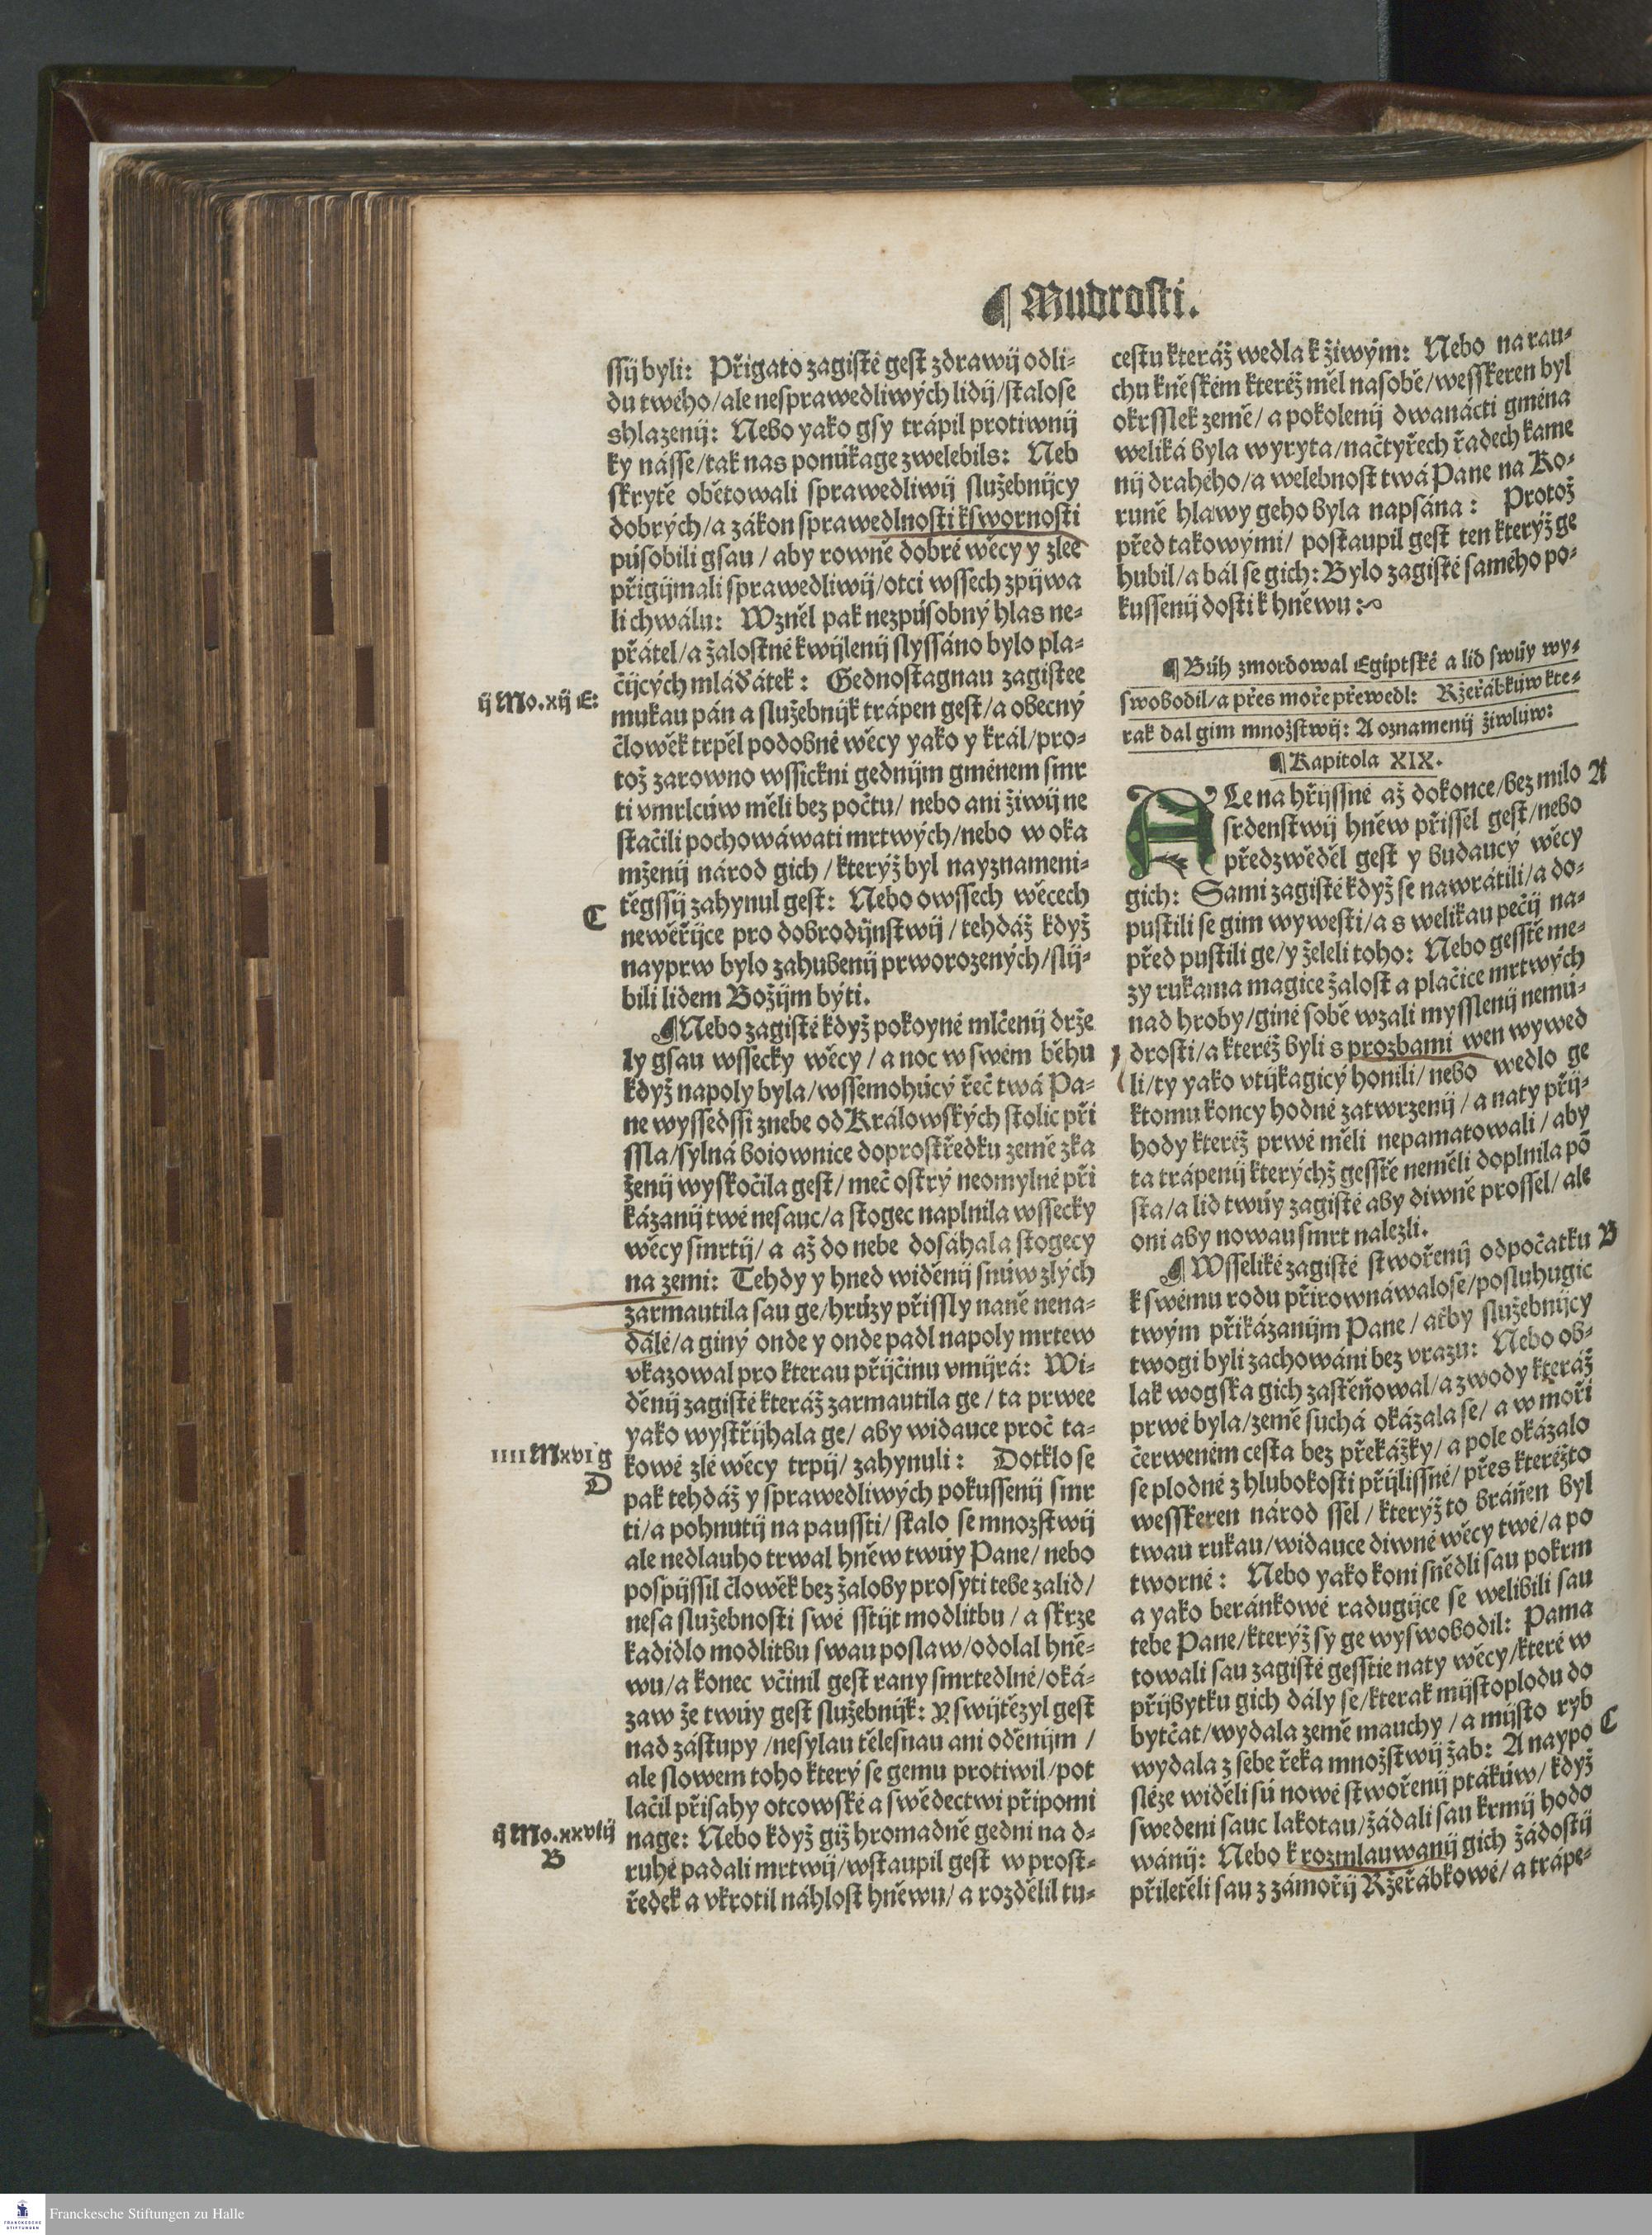 ¶ Mudrosti.
ssij byli: Přigato zagisté gest zdrawij odli⸗
du twého/ale nesprawedliwých lidij/stalose
shlazenij: Nebo yako gsy trápil protiwnij
ky násse/tak nas ponúkage zwelebils: Neb
skrytě obětowali sprawedliwij služebnijcy
dobrých/a zákon sprawedlnosti kswornosti
púsobili gsau / aby rowně dobré wěcy y zlee
přigijmali sprawedliwij/otci wssech zpijwa
li chwálu: Wzněl pak nezpúsobný hlas ne⸗
přátel/a žalostné kwijlenij slyssáno bylo pla⸗
čijcých mláďátek: Gednostagnau zagistee
ij Mo.xij E:
mukau pán a služebnijk trápen gest/a obecný
člowěk trpěl podobné wěcy yako y král/pro⸗
tož zarowno wssickni gednijm gménem smr
ti vmrlcúw měli bez počtu/ nebo ani žiwij ne
stačili pochowáwati mrtwých/nebo w oka
mženij národ gich / kterýž byl nayznameni⸗
těgssij zahynul gest: Nebo owssech wěcech
C
newěřijce pro dobrodijnstwij / tehdáž když
nayprw bylo zahubenij prworozených/slij⸗
bili lidem Božijm býti.
¶Nebo zagisté když pokoyné mlčenij drže
ly gsau wssecky wěcy / a noc w swém běhu
když napoly byla/wssemohúcý řeč twá Pa⸗
ne wyssedssi znebe od Králowských stolic při
ssla/sylná boiownice doprostředku země zka
ženij wyskočila gest/ meč ostrý neomylné při
kázanij twé nesauc/a stogec naplnila wssecky
wěcy smrtij/ a až do nebe dosáhala stogecy
na zemi: Tehdy y hned widěnij snúw zlých
zarmautila sau ge/hrúzy přissly naně nena⸗
dálé/a giný onde y onde padl napoly mrtew
vkazowal pro kterau přijčinu vmijrá: Wi⸗
děnij zagisté kteráž zarmautila ge / ta prwee
yako wystřijhala ge/ aby widauce proč ta⸗
IIII Mxvi g
kowé zlé wěcy trpij/ zahynuli: Dotklo se
D
pak tehdáž y sprawedliwých pokussenij smr
ti/a pohnutij na paussti/ stalo se mnozstwij
ale nedlauho trwal hněw twúy Pane/ nebo
pospijssil člowěk bez žaloby prosyti tebe zalid/
nesa služebnosti swé sstijt modlitbu / a skrze
kadidlo modlitbu swau poslaw/odolal hně⸗
wu/a konec včinil gest rany smrtedlné/oká⸗
zaw že twúy gest služebnijk: Y swijtězyl gest
nad zástupy /nesylau tělesnau ani oděnijm /
ale slowem toho který se gemu protiwil/pot
lačil přisahy otcowské a swědectwi připomi
ij Mo.xxviij
nage: Nebo když giž hromadně gedni na d⸗
B
ruhé padali mrtwij/wstaupil gest w prost⸗
ředek a vkrotil náhlost hněwu/ a rozdělil tu⸗
cestu kteráž wedla k žiwým: Nebo na rau⸗
chu kněském kteréž měl nasobě/wesskeren byl
okrsslek země/ a pokolenij dwanácti gména
weliká byla wyryta/načtyřech řadech kame
nij drahého/a welebnost twá Pane na Ko⸗
runě hlawy geho byla napsána: Protož
před takowými/ postaupil gest ten kterýž ge
hubil/a bál se gich: Bylo zagisté samého po⸗
kussenij dosti k hněwu:
¶ Búh zmordowal Egiptské a lid swúy wy⸗
swobodil/a přes moře přewedl: Ržeřábkúw kte⸗
rak dal gim množstwij: A oznamenij žiwlúw:
¶ Kapitola XIX.
ALe na hřijssné až dokonce/bez milo
A
srdenstwij hněw přissel gest/nebo
předzwěděl gest y budaucý wěcy
gich: Sami zagisté když se nawrátili/a do⸗
pustili se gim wywesti/a s welikau pečij na⸗
před pustili ge/y želeli toho: Nebo gesstě me⸗
zy rukama magice žalost a plačice mrtwých
nad hroby/giné sobě wzali mysslenij nemú⸗
drosti/a kteréž byli s prozbami wen wywed
li/ty yako vtijkagicý honili/ nebo wedlo ge
ktomu koncy hodné zatwrzenij / a naty přij⸗
hody kteréž prwé měli nepamatowali / aby
ta trápenij kterýchž gesstě neměli doplnila pō
sta/a lid twúy zagisté aby diwně prossel/ ale
oni aby nowau smrt nalezli.
¶ Wsseliké zagisté stwořenij odpočatku
B
k swému rodu přirownáwalose/posluhugic
twým přikázanijm Pane / aťby služebnijcy
twogi byli zachowáni bez vrazu: Nebo ob⸗
lak wogska gich zastěňowal/a zwody kteráž
prwé byla/země suchá okázala se/ a w moři
čerweném cesta bez překážky/ a pole okázalo
se plodné z hlubokosti přijlissné/ přes kteréžto
wesskeren národ ssel / kterýž to bráňen byl
twau rukau/widauce diwné wěcy twé/a po
tworné: Nebo yako koni snědli sau pokrm
a yako beránkowé radugijce se welibili sau
tebe Pane/kterýž sy ge wyswobodil: Pama
towali sau zagisté gesstie naty wěcy/které w
přijbytku gich dály se/kterak mijstoplodu do
bytčat/wydala země mauchy / a mijsto ryb
wydala z sebe řeka množstwij žab: A naypo
C
sléze widěli sú nowé stwořenij ptákúw/ když
swedeni sauc lakotau/žádali sau krmij hodo
wánij: Nebo k rozmlauwanij gich žádostij
přiletěli sau z zámořij Ržeřábkowé/ a trápe⸗
Franckesche Stiftungen zu Halle